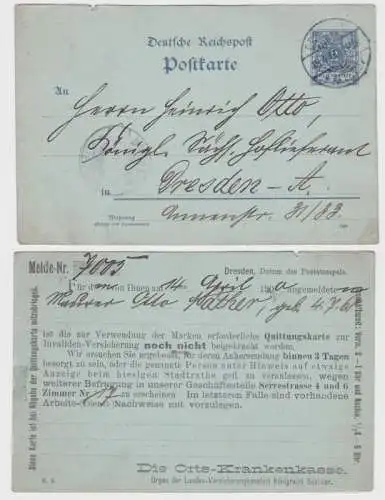 Deutsche Reichspost
Postkarte
An
Herrn Heinrich Otto,
Königl. Sächs. Hoflieferant
in Dresden-A.
Wohnung Annenstr. 31/33.
Melde-Nr. 7005
Dresden, Datum des Poststempels.
Für d Ihnen am 14 April 190 angemeldete
Maurer Otto geb. 4.7.
ist die zur Verwendung der Marken erforderliche Quittungskarte zur
Invaliden-Versicherung noch nicht beigebracht worden.
Wir ersuchen Sie ergebenst, für deren Anhersendung binnen 3 Tagen
besorgt zu sein, oder die genannte Person unter Hinweis auf etwaige
Anzeige beim hiesigen Stadtrathe gefl. zu veranlassen, wegen
weiterer Befragung in unserer Geschäftsstelle Serrestrasse 4 und 6
Zimmer Nr. 17 zu erscheinen. Im letzteren Falle sind vorhandene
Arbeits- (Lohn) Nachweise mit vorzulegen.
Die Orts-Krankenkasse.
Organ der Landes-Versicherungsanstalt Königreich Sachsen.
Diese Karte ist bei Abgabe der Quittungskarte mitzubringen.